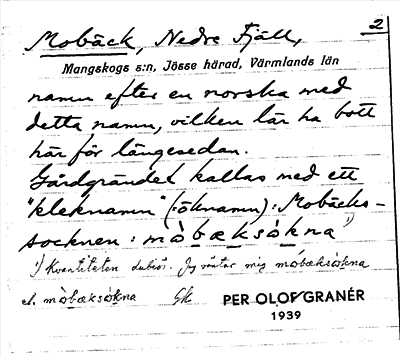 2
Mobäck, Nedre Fjäll,
Mangskogs s:n, Jösse härad, Värmlands län
namn efter en norska med
detta namn, vilken lär ha bott
här för längesedan.
Gårdgrändet kallas med ett
"kleknamn" (:öknamn): Mobäcks-
socknen : mòbæksòkna ¹)
¹) Kvantiteten dubiös. Jag väntar mig mòbæksòkna
el. mòbæksòkna
PER OLOF GRANÉR
1939